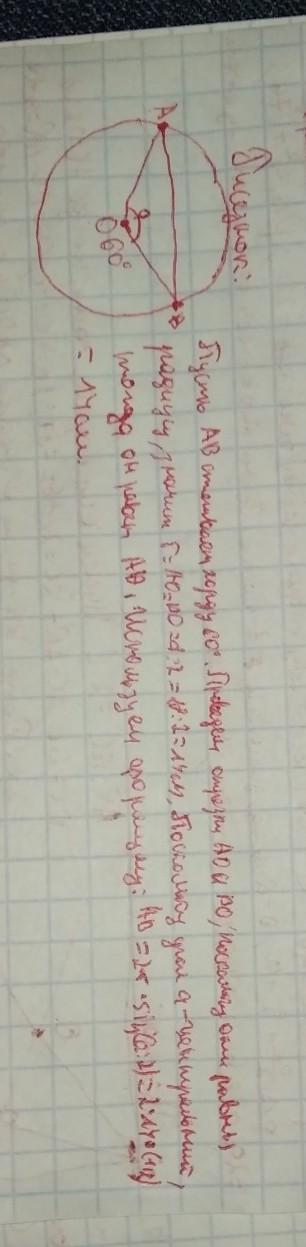 Рисунок:
A
B
α
O 60°
Пусть AB стягивает дугу 60°. Проведем отрезки AO и BO, поскольку они равны
радиусу, значит r = AO = BO = d : 2 = 28 : 2 = 14 см. Поскольку угол α - центральный,
тогда он равен AB. Используем формулу: AB = 2r · sin(α:2) = 2·14·(1/2)
= 14 см.